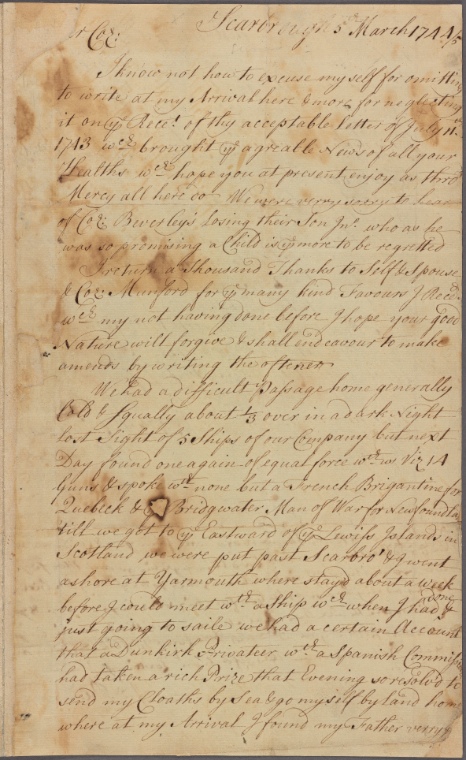 Scarbrough 5th March 1744/5
Dr Coz:
I know not how to excuse my self for omitting
to write at my Arrival here & more for neglecting
it on ye Recet. of thy acceptable letter of July 11
1743 wch. brought ye agreable News of all your
Healths wch. hope you at present enjoy as thro
Mercy all here do We were verry sorry to hear
of Coz: Beverley's losing their Son Jno. who as he
was so promising a Child is ye more to be regretted
I return a thousand Thanks to Self & Spouse
& Coz: Munford for ye many kind Favours I Recd.
wch. my not having done before I hope your good
Nature will forgive & shall endeavour to make
amends by writing the oftener
We had a difficult Passage home generally
Cold & Squally about 1/3 over in a dark Night
lost Sight of 5 Ships of our Company but next
Day found one again of equal force wth. us Viz 14
Guns & spoke wth. none but a French Brigantine for
Quebeck & Bridgwater Man of War for Newfoundland
till we got to ye Eastward of ye Lewiss Islands in
Scotland we were put past Scarbro' & I went
ashore at Yarmouth where stayd about a Week
before I could meet wth. a Ship wch. when I had done &
just going to saile we had a certain Account
that a Dunkirk Privateer wth. a Spanish Commission
had taken a rich Prize that Evening so resolv'd to
send my Cloaths by Sea & go my self by Land home
where at my Arrival I found my Father verry